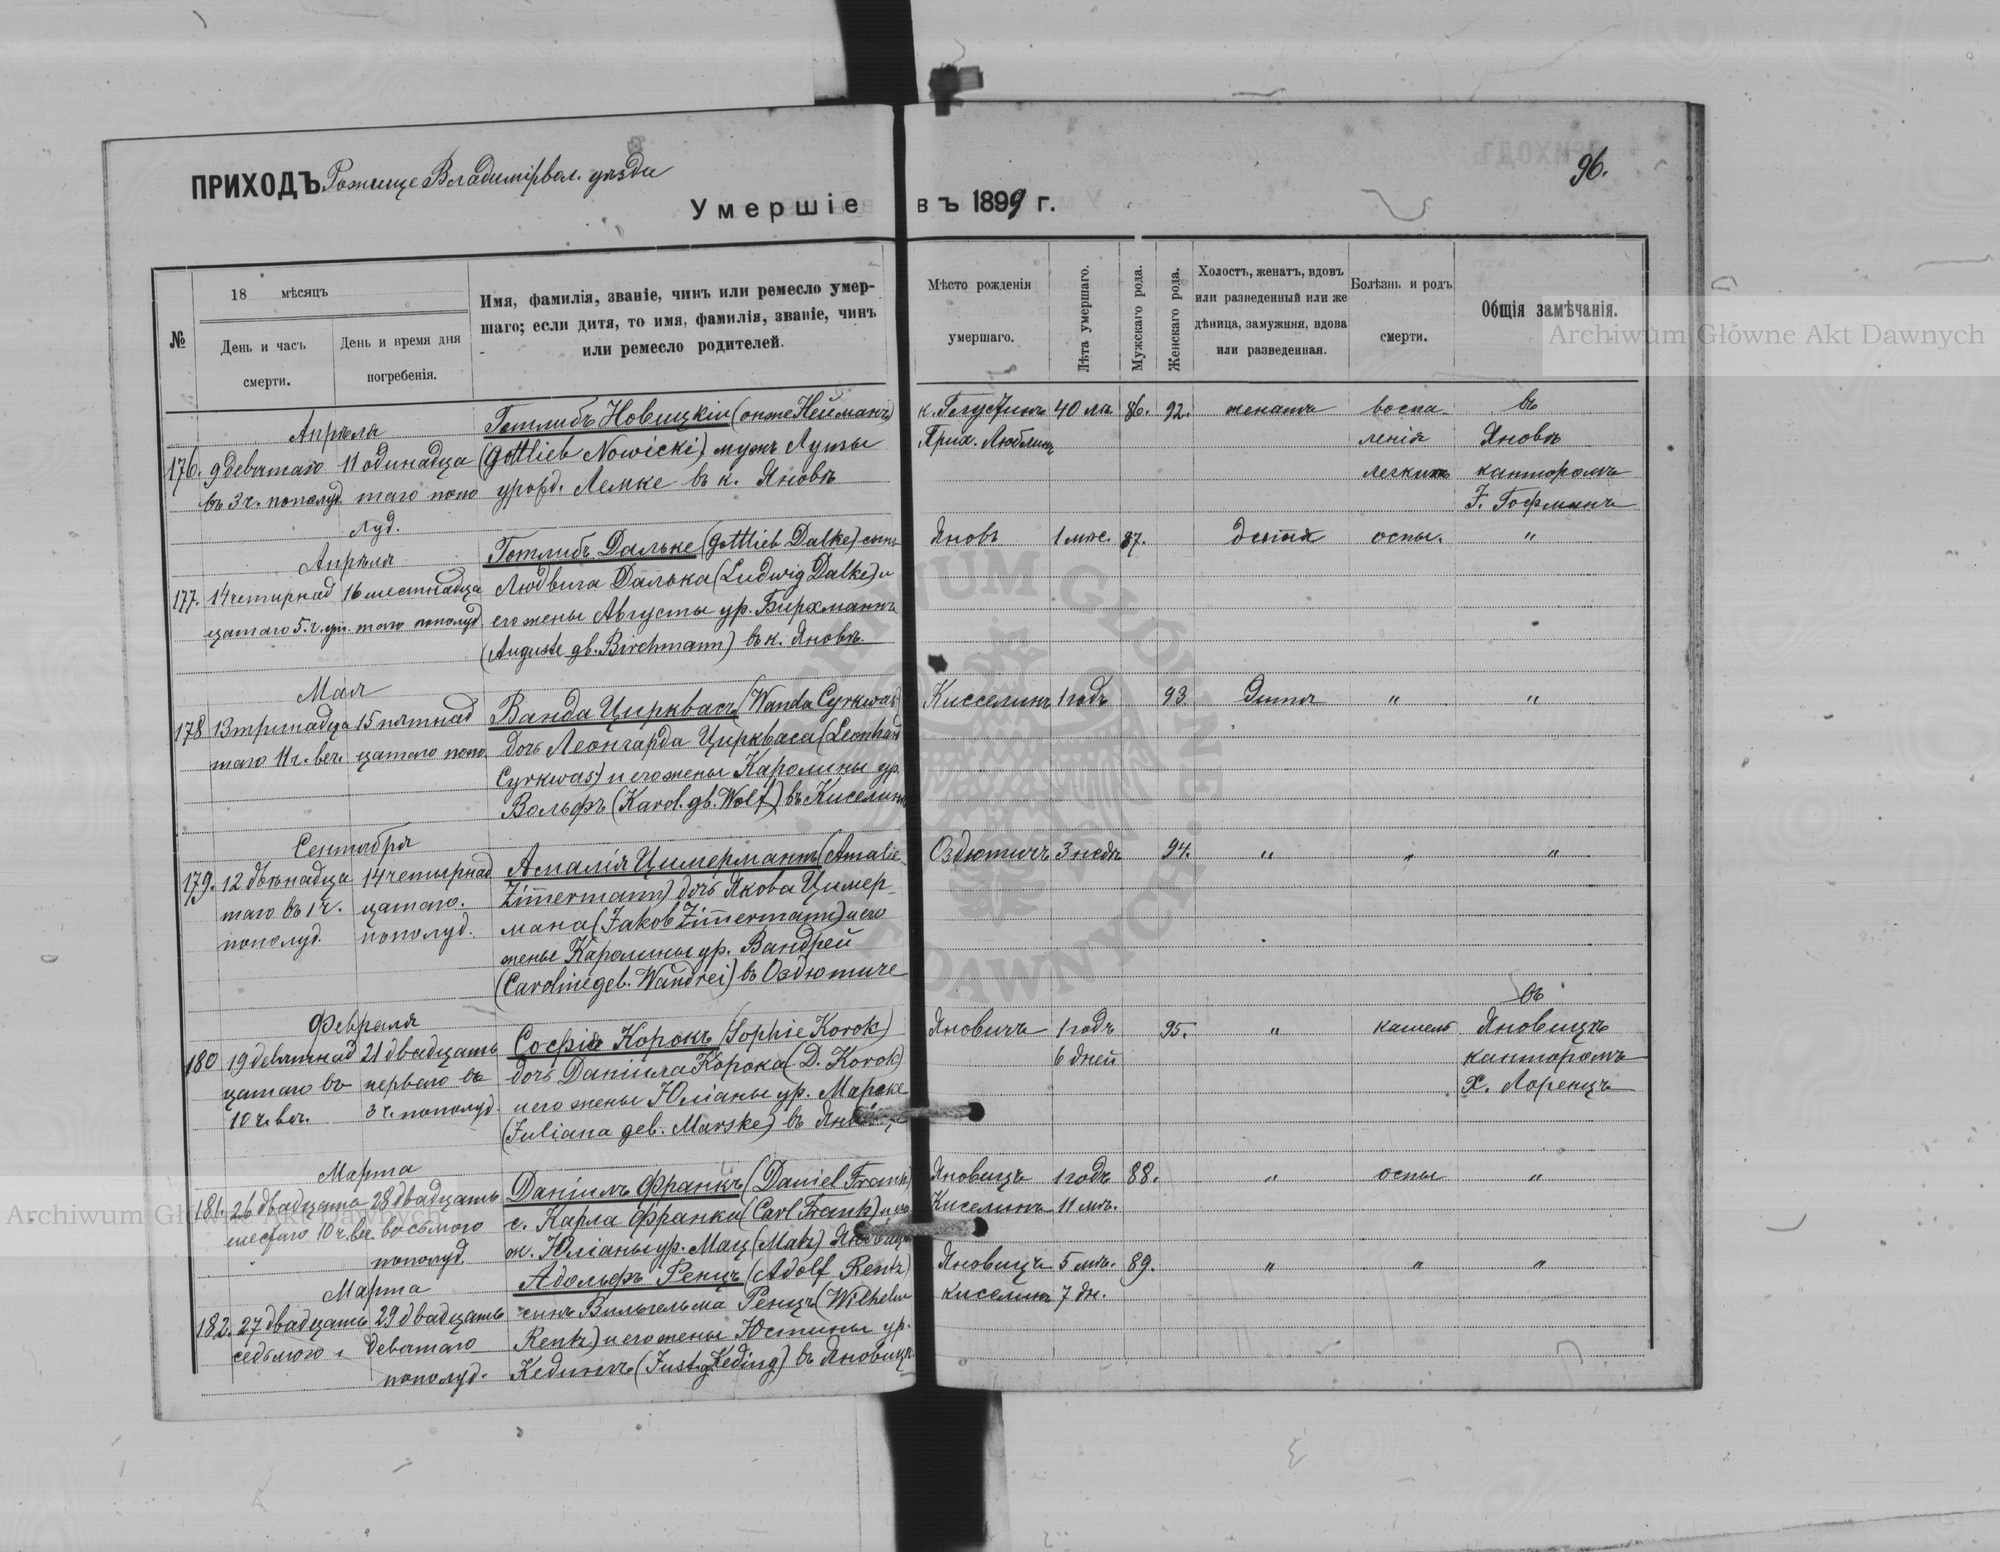 ПРИХОДЪ Рожище Владимірвол. уѣзда
96.
Умершіе въ 1899 г.
№
18 мѣсяцъ
День и часъ смерти.
День и время дня погребенія.
Имя, фамилія, званіе, чинъ или ремесло умер-
шаго; если дитя, то имя, фамилія, званіе, чинъ
или ремесло родителей.
Мѣсто рожденія умершаго.
Лѣта умершаго.
Мужскаго рода.
Женскаго рода.
Холостъ, женатъ, вдовъ
или разведенный или же
дѣвица, замужняя, вдова
или разведенная.
Болѣзнь и родъ смерти.
Общія замѣчанія.
Archiwum Główne Akt Dawnych
Апрѣля
176. 9 девятаго 11 одинадца
въ 3 ч. пополуд. таго попо
луд.
Готлибъ Новицкій (онже Нейманъ)
(Gottlieb Nowicki) мужъ Луизы
урожд. Лемке въ к. Яновкѣ
Прих. Люблинъ
40 86. 92. женатъ воспа-
ленія
легкихъ
въ
Яновкѣ
канторомъ
F. Гофманъ
Апрѣля
177. 14 четирнад 16 шестнадца
цатаго 5. ч. таго пополуд.
Готлибъ Дальке (Gottlieb Dalke) сынъ
Людвига Далька (Ludwig Dalke) и
его жены Августы ур. Бирхманнъ
(Auguste gb. Birchmann) въ к. Яновкѣ.
Яновъ 1 мѣс. 87. дитя оспы. "
Мая
178 13 тринадца 15 пятнад
таго 11 ч. веч. цатаго попо.
Ванда Цирквасъ (Wanda Cyrkwas)
дочь Леонгарда Циркваса (Leonhard
Cyrkwas) и его жены Каролины ур.
Вольфъ (Karol. gb. Wolf) въ Киселинѣ
Кисселинъ 1 годъ 93 Дитя " "
Сентября
179. 12 двѣнадца 14 четырнад
таго въ 1 ч. цатаго.
пополуд. пополуд.
Амалія Цимерманъ (Amalie
Zimermann) дочь Якова Цимер-
мана (Jakob Zimermann) и его
жены Каролины ур. Вандрей
(Caroline geb. Wandrei) въ Оздютиче
Оздютичъ 3 недѣ 94. " " "
Февраля
180 19 девятнад 21 двадцать
цатаго въ первого въ
10 ч. веч. 3 ч. пополуд.
Софія Корокъ (Sophie Korok)
дочь Даніила Корока (D. Korok)
и его жены Юліаны ур. Марске
(Juliana geb. Marske) въ
Яновичъ 1 годъ 95. " кашель
6 дней
въ
Яновицъ
канторомъ
Х. Лоренцъ
Марта
181. 26 двадцать 28 двадцать
шестаго 10 ч. веч. восьмого
пополуд.
Даніилъ Франкъ (Daniel Frank)
с. Карла Франка (Carl Frank) и его
ж. Юліаны ур. Мац (Matz) Яновицъ
Яновицъ 1 годъ 88. " оспы "
Киселинъ 11 мѣс.
Марта
182. 27 двадцать 29 двадцать
седьмого девятаго
пополуд.
Адольфъ Ренцъ (Adolf Rentz)
сынъ Вильгельма Ренцъ (Wilhelm
Rentz) и его жены Юстины ур.
Кедингъ (Just. g. Keding) въ Яновицѣ
Яновицъ 5 мѣс. 89. " " "
Киселинъ 7 дн.
Archiwum Główne Akt Dawnych
ARCHIWUM GŁÓWNE AKT DAWNYCH